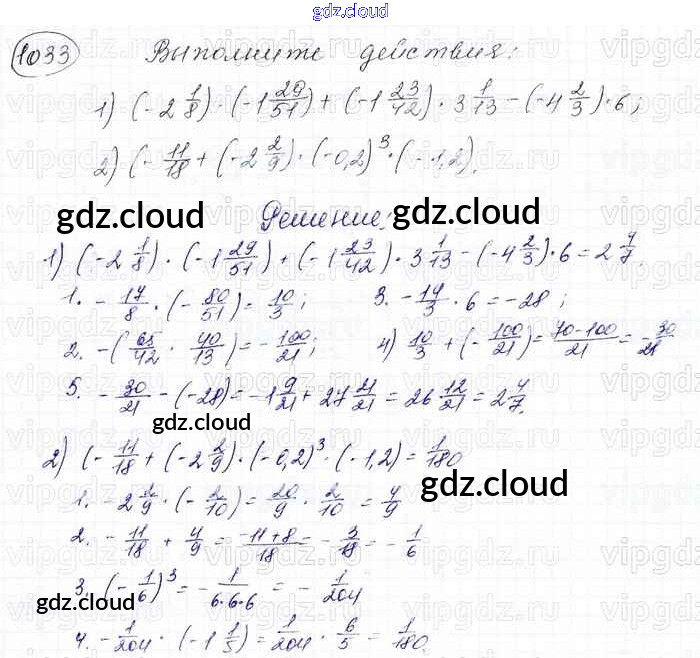 gdz.cloud
1033 Выполните действия:
1) (-2 1/8) · (-1 29/51) + (-1 23/42) · 3 1/13 - (-4 2/3) · 6;
2) (- 11/18 + (-2 2/9) · (-0,2)^3 · (-1,2).
gdz.cloud Решение: gdz.cloud
1) (-2 1/8) · (-1 29/51) + (-1 23/42) · 3 1/13 - (-4 2/3) · 6 = 2 4/7.
1. - 17/8 · (- 80/51) = 10/3; 3. - 14/3 · 6 = -28;
2. -(65/42 · 40/13) = - 100/21; 4) 10/3 + (- 100/21) = 70-100/21 = - 30/21
5. - 30/21 - (-28) = -1 9/21 + 27 21/21 = 26 12/21 = 2 4/7.
gdz.cloud
2) (- 11/18 + (-2 2/9) · (-0,2)^3 · (-1,2) = 1/180
1. -2 2/9 · (- 2/10) = 20/9 · 2/10 = 4/9
gdz.cloud
2. - 11/18 + 4/9 = -11+8/18 = - 3/18 = - 1/6
3. (- 1/6)^3 = - 1/6·6·6 = - 1/204
gdz.cloud
4. - 1/204 · (-1 1/5) = 1/204 · 6/5 = 1/180.